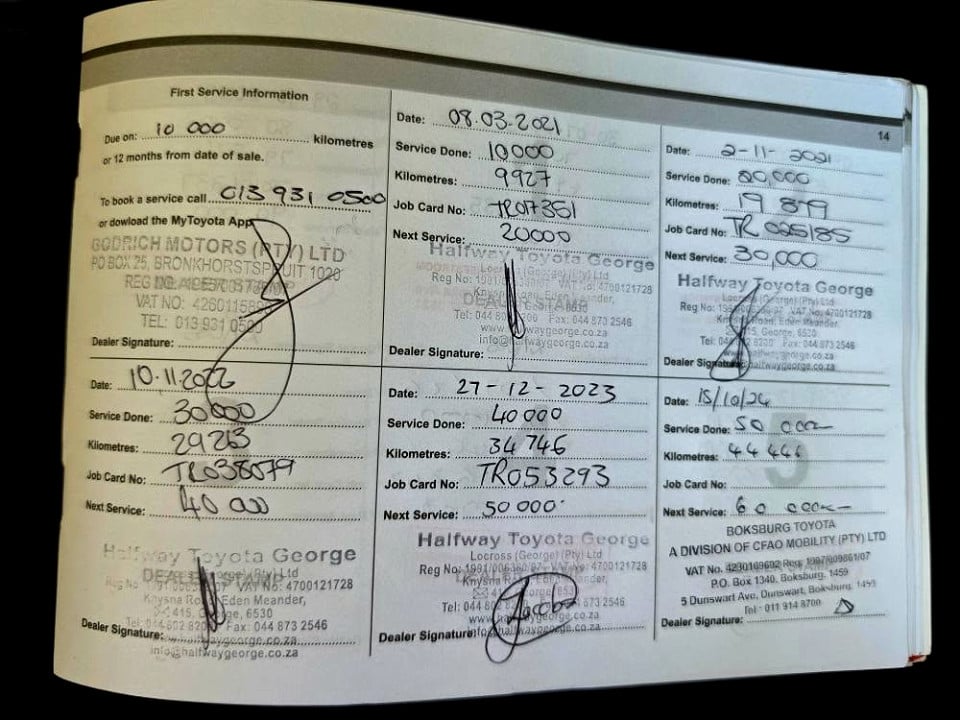 14
First Service Information
Due on: 10 000 kilometres
or 12 months from date of sale.
To book a service call 013 931 0500
or dowload the MyToyota App
GODRICH MOTORS (PTY) LTD
PO BOX 25, BRONKHORSTSPRUIT 1020
REG NO.
VAT NO: 42601158
TEL: 013 931 0500
Dealer Signature:
Date: 08.03.2021
Service Done: 10000
Kilometres: 9927
Job Card No: TR017351
Next Service: 20000
Halfway Toyota George
Locross (George) (Pty) Ltd
Reg No: VAT No: 4700121728
DEALER STAMP
George, 6530
Tel: 044 802 8200 Fax: 044 873 2546
www.halfwaygeorge.co.za
info@halfwaygeorge.co.za
Dealer Signature:
Date: 2-11-2021
Service Done: 20,000
Kilometres: 19 879
Job Card No: TR 025185
Next Service: 30,000
Halfway Toyota George
Locross (George) (Pty) Ltd
Reg No: VAT No: 4700121728
Knysna Road, Eden Meander,
415, George, 6530
Tel: 044 802 8200 Fax: 044 873 2546
www.halfwaygeorge.co.za
Dealer Signature: info@halfwaygeorge.co.za
Date: 10.11.2022
Service Done: 30000
Kilometres: 29213
Job Card No: TR038079
Next Service: 40 000
Halfway Toyota George
DEALER STAMP
Reg No VAT No: 4700121728
Knysna Road, Eden Meander,
415, George, 6530
Tel: 044 802 8200 Fax: 044 873 2546
www.halfwaygeorge.co.za
Dealer Signature:
info@halfwaygeorge.co.za
Date: 27-12-2023
Service Done: 40 000
Kilometres: 34 746
Job Card No: TR053293
Next Service: 50 000
Halfway Toyota George
Locross (George) (Pty) Ltd
Reg No: VAT No: 4700121728
Knysna Road, Eden Meander,
415, George, 6530
Tel: 044 802 8200 Fax: 044 873 2546
www.halfwaygeorge.co.za
Dealer Signature: info@halfwaygeorge.co.za
Date: 15/10/24
Service Done: 50 000
Kilometres: 44 446
Job Card No:
Next Service: 60 000
BOKSBURG TOYOTA
A DIVISION OF CFAO MOBILITY (PTY) LTD
VAT No. 4230169692 Reg. 1997/009861/07
P.O. Box 1340, Boksburg, 1459
5 Dunswart Ave, Dunswart, Boksburg, 1459
Tel: 011 914 8700
Dealer Signature: